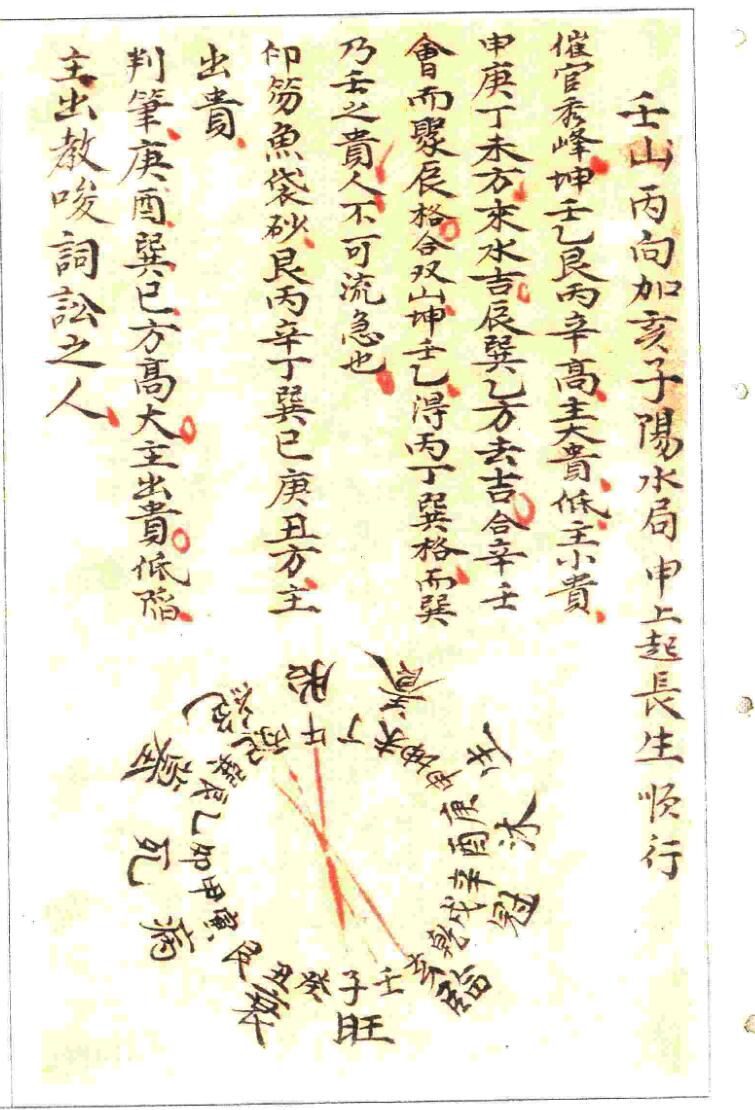 壬山丙向加亥子陽水局申上起長生順行
催官秀峰坤壬乙艮丙辛高主大貴低主小貴
申庚丁未方來水吉辰巽乙方去吉合辛壬
會而聚辰格合双山坤壬乙得丙丁巽格而巽
乃壬之貴人不可流急也
印笏魚袋砂艮丙辛丁巽巳庚丑方主
出貴
判筆庚酉巽巳方髙大主出貴低陷
主出教唆詞訟之人
養
生
沐
冠
臨
旺
衰
病
死
墓
絕
胎
午丁未坤申庚酉辛戌乾亥壬子癸丑艮寅甲卯乙辰巽巳丙